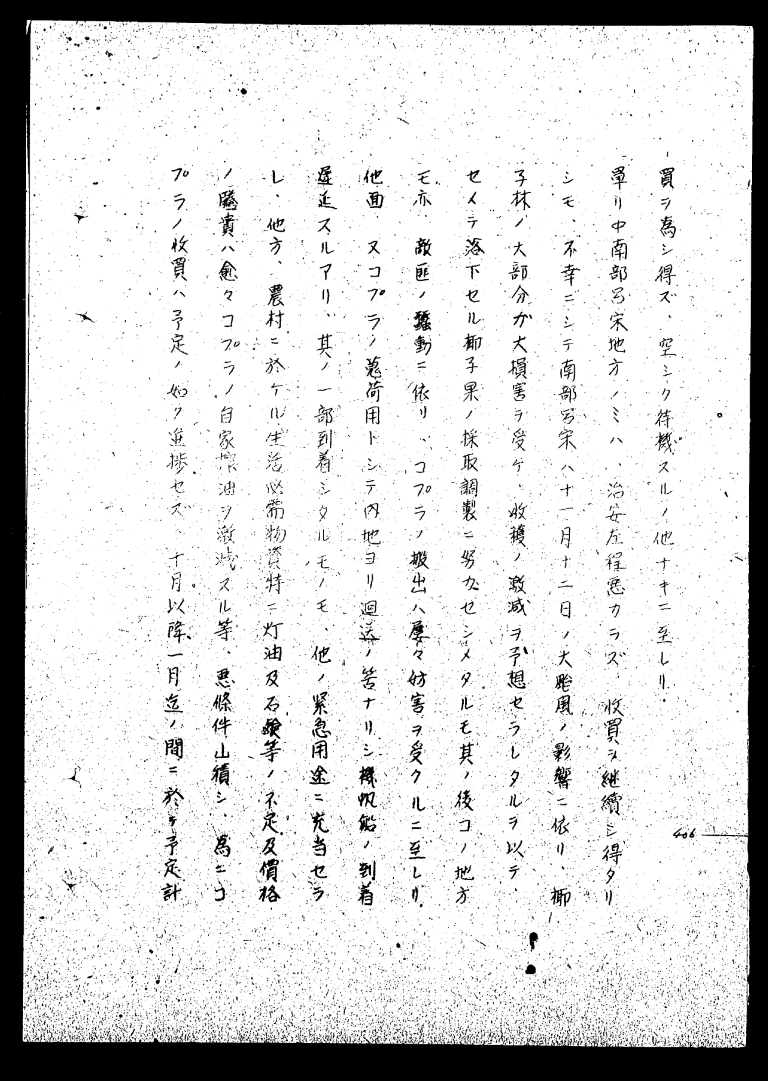 買ヲ為シ得ズ、空シク待機スルノ他ナキニ至レリ.
單リ中南部呂宋地方ノミハ、治安左程悪カラズ、收買ヲ継續シ得タリ
シモ、不幸ニシテ南部呂宋ハ十一月十二日ノ大颱風ノ影響ニ依リ、椰
子林ノ大部分ガ大損害ヲ受ケ、收穫ノ激減ヲ予想セラレタルヲ以テ、
セメテ落下セル椰子果ノ採取調製ニ努力セシメタルモ其ノ後コノ地方
モ亦 敵匪ノ蠢動ニ依リ、コプラノ搬出ハ屢々妨害ヲ受クルニ至レリ.
他面 又コプラノ蒐荷用トシテ内地ヨリ廻送ノ筈ナリシ機帆船ノ到着
遅延スルアリ、其ノ一部到着シタルモノモ、他ノ緊急用途ニ充当セラ
レ、他方、農村ニ於ケル生活必需物資特ニ灯油及石鹸等ノ不足及價格
ノ騰貴ハ愈々コプラノ自家搾油ヲ激成スル等、悪條件山積シ、為ニコ
プラノ收買ハ予定ノ如ク進捗セズ、十月以降一月迄ノ間ニ於テ予定計
406